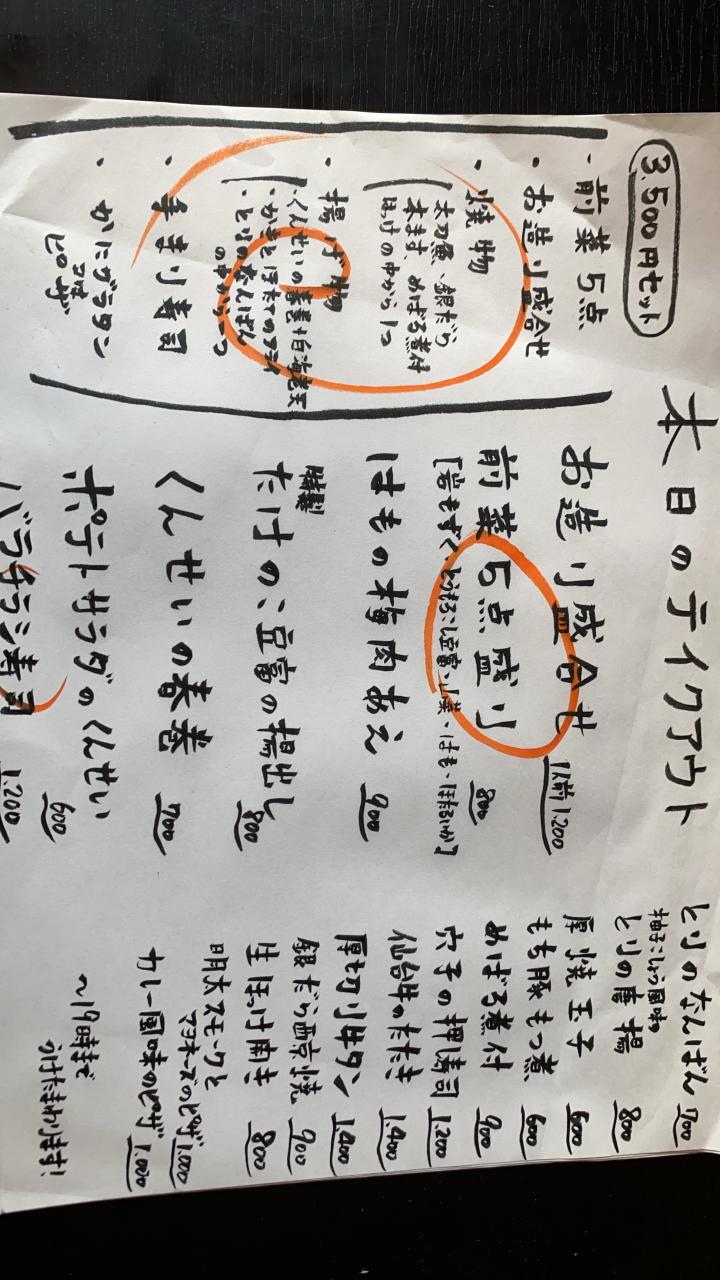 本日のテイクアウト
3,500円セット
・前菜5点
・お造り盛合せ
・焼物
太刀魚、銀だら
本ます、めばる煮付
ほっけの中から1つ
・揚げ物
・くんせいの春巻+白海老天
・かきとほたてのフライ
・とりのなんばん
の中から一つ
・手まり寿司
・かにグラタン
又は
ピザ
お造り盛合せ 1人前1.200
前菜5点盛り 800
[岩もずく、とうもろこし豆富、山菜、はも、ほたるいか]
はもの梅肉あえ 900
特製
たけのこ豆富の揚出し 800
くんせいの春巻 700
ポテトサラダのくんせい 600
バラチラシ寿司 1.200
とりのなんばん 700
柚子こしょう風味の
とりの唐揚 800
厚焼玉子 600
もち豚もつ煮 600
めばる煮付 900
穴子の押寿司 1.200
仙台牛のたたき 1.400
厚切り牛タン 1.400
銀だら西京焼 900
生ほっけ開き 800
明太スモークと
マヨネーズのピザ 1.000
カレー風味のピザ 1.000
〜19時まで
うけたまわります!